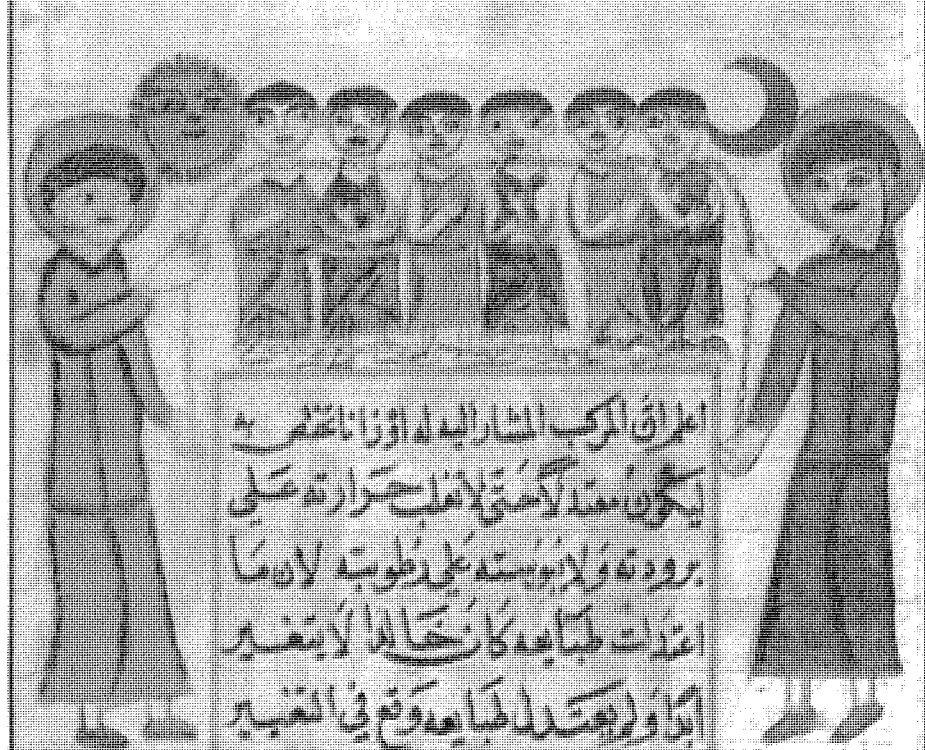 اعلم ان المركب المشار اليه له اوزانا تختص به
ليكون معتدلا حتى لا تغلب حرارته على
برودته ولا يبوسته على رطوبته لان ما
اعتدلت طبايعه كان خالدا لا يتغير
ابدا ولم يعتدل طبايعه وقع في التغيير